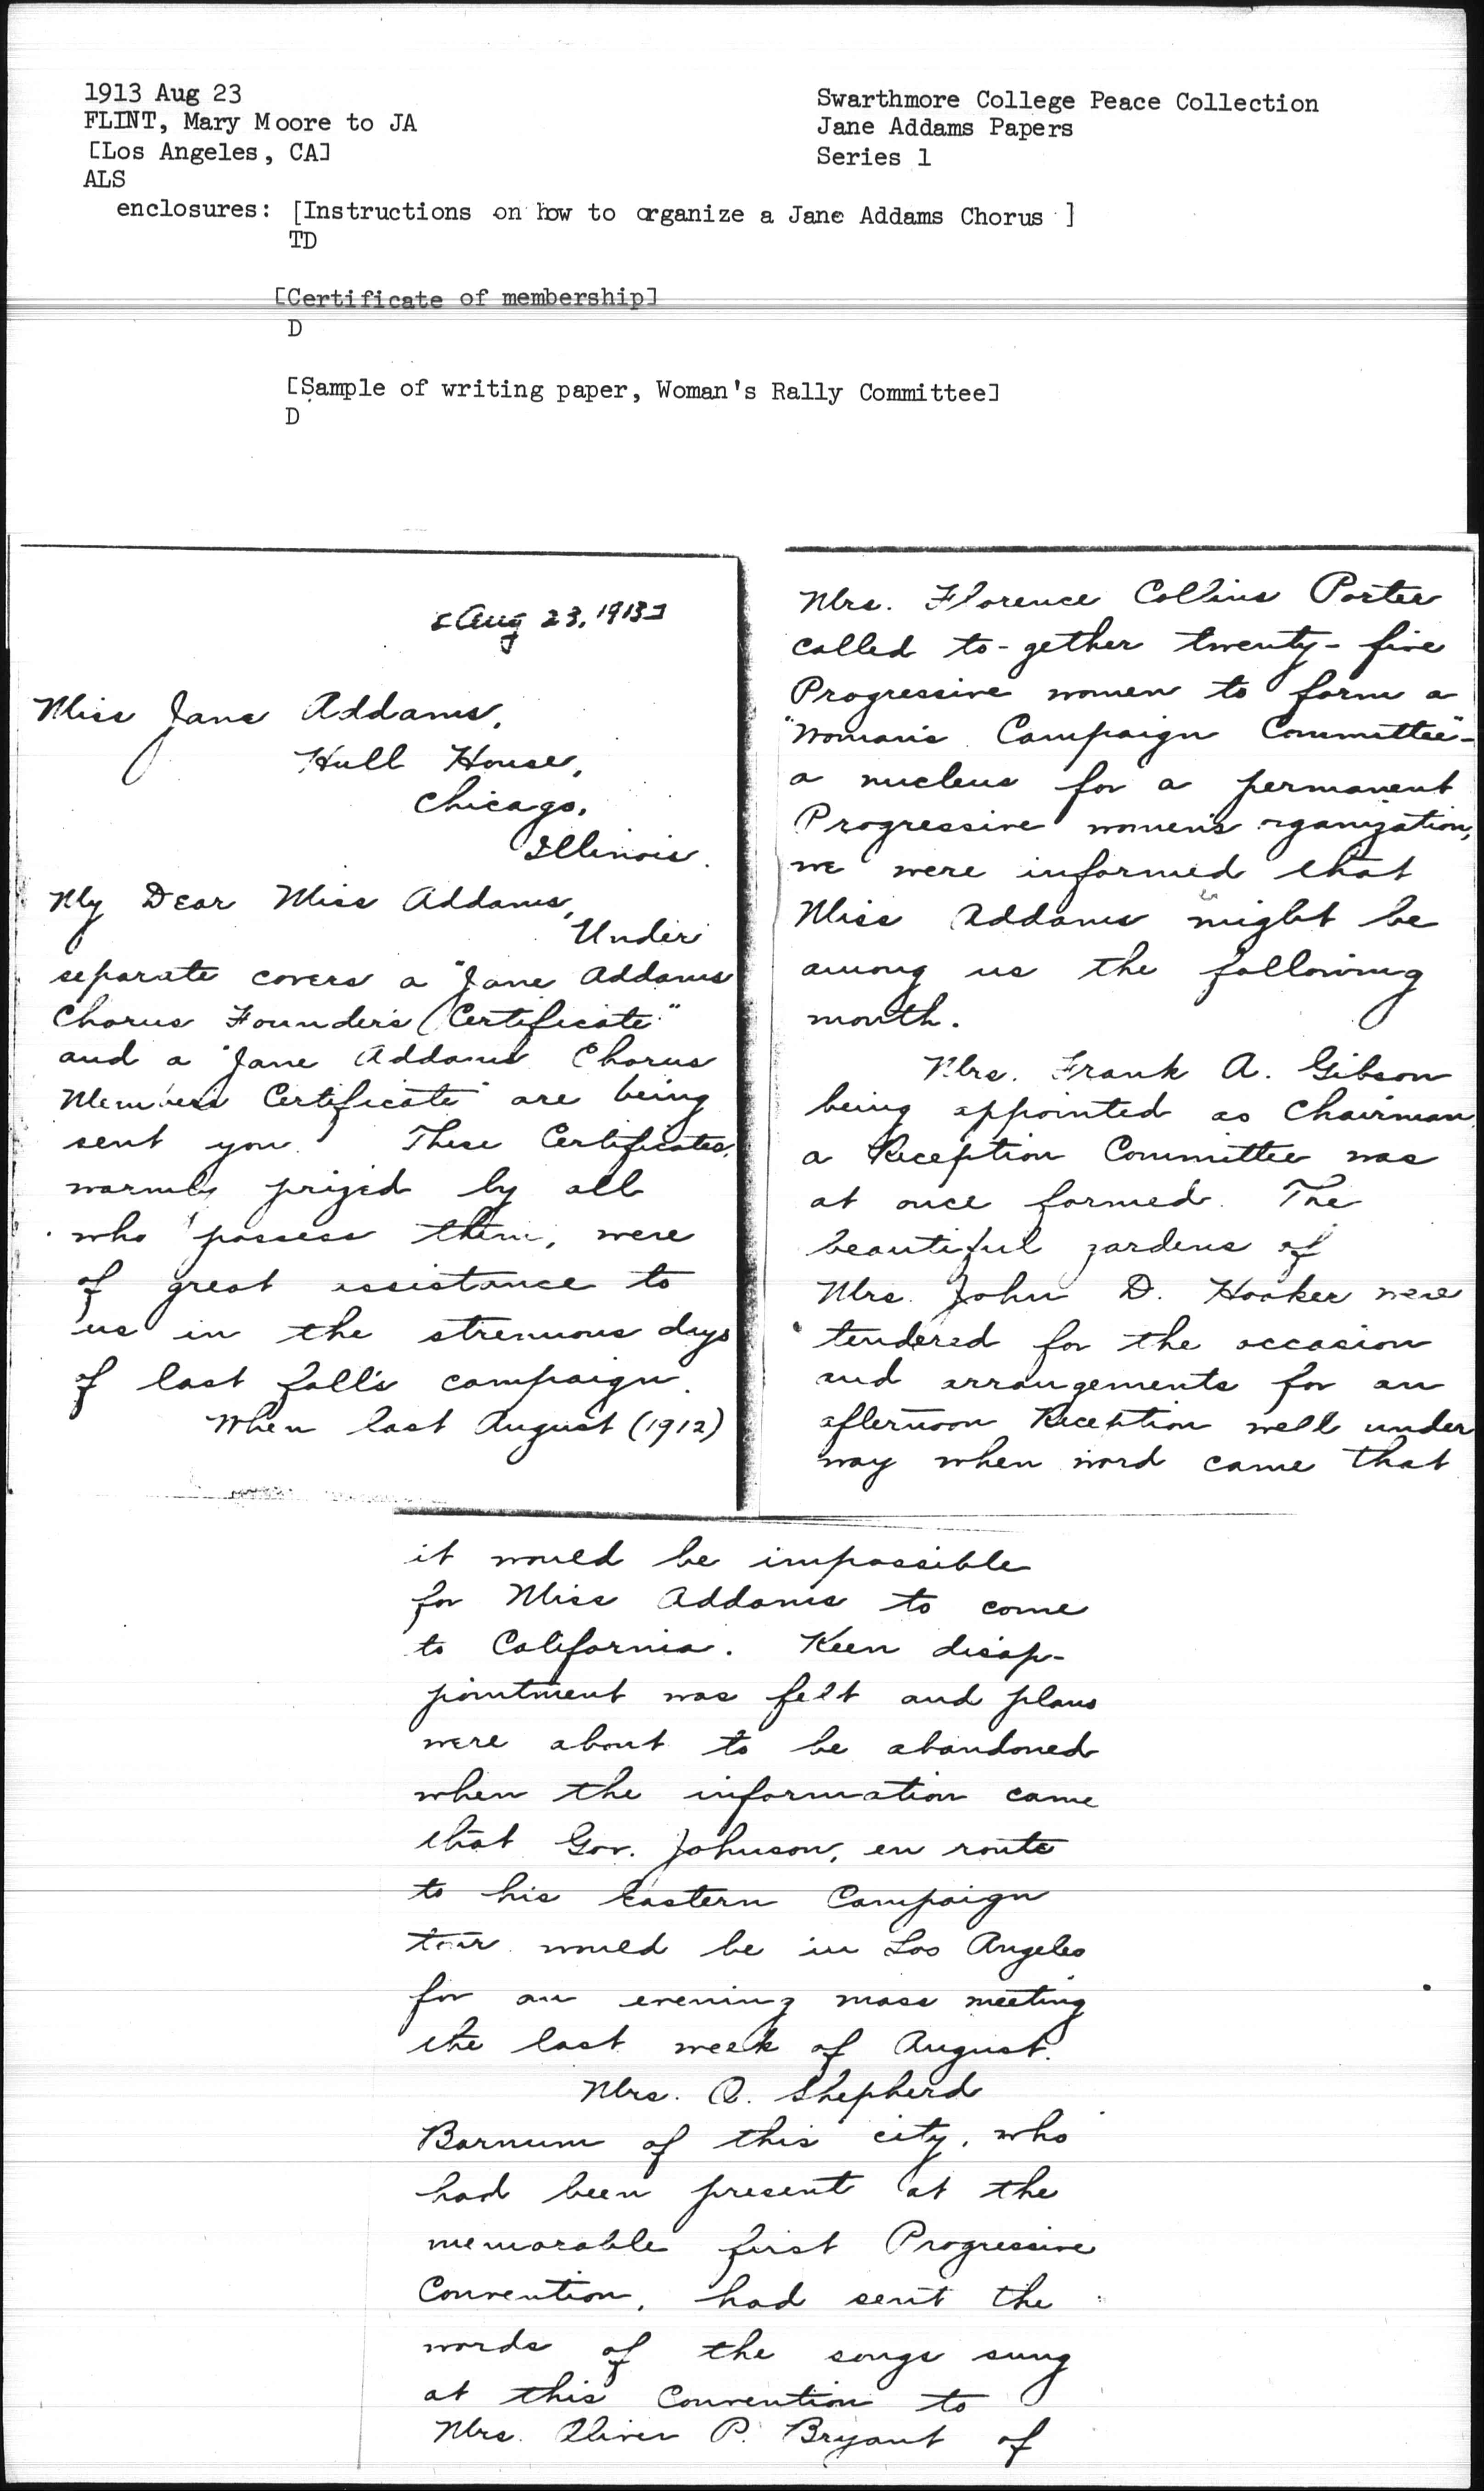 1913 Aug 23
FLINT, Mary Moore to JA
[Los Angeles, CA]
ALS
enclosures: [Instructions on how to organize a Jane Addams Chorus ]
TD
[Certificate of membership]
D
[Sample of writing paper, Woman's Rally Committee]
D
Swarthmore College Peace Collection
Jane Addams Papers
Series 1
[Aug 23, 1913]
Miss Jane Addams,
Hull House,
Chicago,
Illinois.
My Dear Miss Addams,
Under
separate covers a "Jane Addams
Chorus Founder's Certificate"
and a "Jane Addams Chorus
Members Certificate" are being
sent you. These Certificates,
warmly prized by all
who possess them, were
of great assistance to
us in the strenuous days
of last fall's campaign.
When last August (1912)
Mrs. Florence Collins Porter
called to-gether twenty-five
Progressive women to form a
"Woman's Campaign Committee"-
a nucleus for a permanent
Progressive women's rganization,
we were informed that
Miss Addams might be
among us the following
month.
Mrs. Frank A. Gibson
being appointed as Chairman,
a Reception Committee was
at once formed. The
beautiful gardens of
Mrs. John D. Hooker were
tendered for the occasion
and arrangements for an
afternoon Reception well under
way when word came that
it would be impossible
for Miss Addams to come
to California. Keen disap-
pointment was felt and plans
were about to be abandoned
when the information came
that Gov. Johnson, en route
to his Eastern Campaign
tour would be in Los Angeles
for an evening mass meeting
the last week of August.
Mrs. O. Shepherd
Barnum of this city, who
had been present at the
memorable first Progressive
Convention, had sent the
words of the songs sung
at this Convention to
Mrs. Oliver P. Bryant of